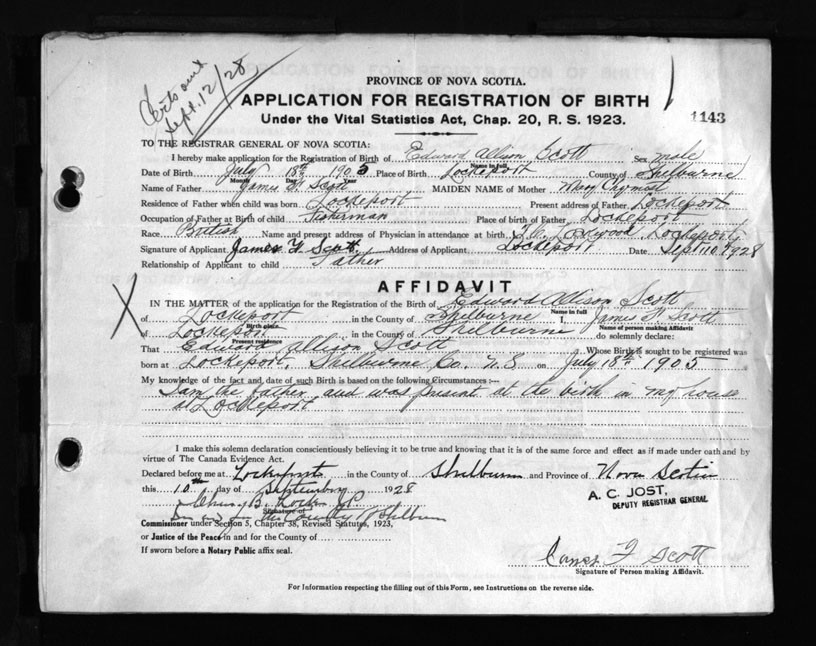 Certs sent
Sept. 12/28
PROVINCE OF NOVA SCOTIA.
APPLICATION FOR REGISTRATION OF BIRTH
Under the Vital Statistics Act, Chap. 20, R. S. 1923.
1143
TO THE REGISTRAR GENERAL OF NOVA SCOTIA:
I hereby make application for the Registration of Birth of Edward Allison Scott Sex male
Name in full
Date of Birth July 18th 1905 Place of Birth Lockeport County of Shelburne
Month Day Year
Name of Father James F Scott MAIDEN NAME of Mother Mary
Residence of Father when child was born Lockeport Present address of Father Lockeport
Occupation of Father at Birth of child Fisherman Place of birth of Father Lockeport
Race British Name and present address of Physician in attendance at birth Lockwood, Lockeport
Signature of Applicant James F Scott Address of Applicant Lockeport Date Sept 10 1928
Relationship of Applicant to child Father
AFFIDAVIT
X
IN THE MATTER of the application for the Registration of the Birth of Edward Allison Scott
Name in full
of Lockeport in the County of Shelburne I, James F Scott
Birth place Name of person making Affidavit
of Lockeport in the County of Shelburne do solemnly declare:
Present residence
That Edward Allison Scott Whose Birth is sought to be registered was
born at Lockeport, Shelburne Co. N.S on July 18th 1905
My knowledge of the fact and date of such Birth is based on the following Circumstances :—
I am the father and was present at the birth in my house
at Lockeport
I make this solemn declaration conscientiously believing it to be true and knowing that it is of the same force and effect as if made under oath and by
virtue of The Canada Evidence Act.
Declared before me at Lockeport in the County of Shelburne and Province of Nova Scotia
this 10th day of September 1928
A. C. JOST,
DEPUTY REGISTRAR GENERAL
Locke JP
Signature of
in & for the County of Shelburne
Commissioner under Section 5, Chapter 38, Revised Statutes, 1923,
or Justice of the Peace in and for the County of
If sworn before a Notary Public affix seal.
James F Scott
Signature of Person making Affidavit.
For Information respecting the filling out of this Form, see Instructions on the reverse side.